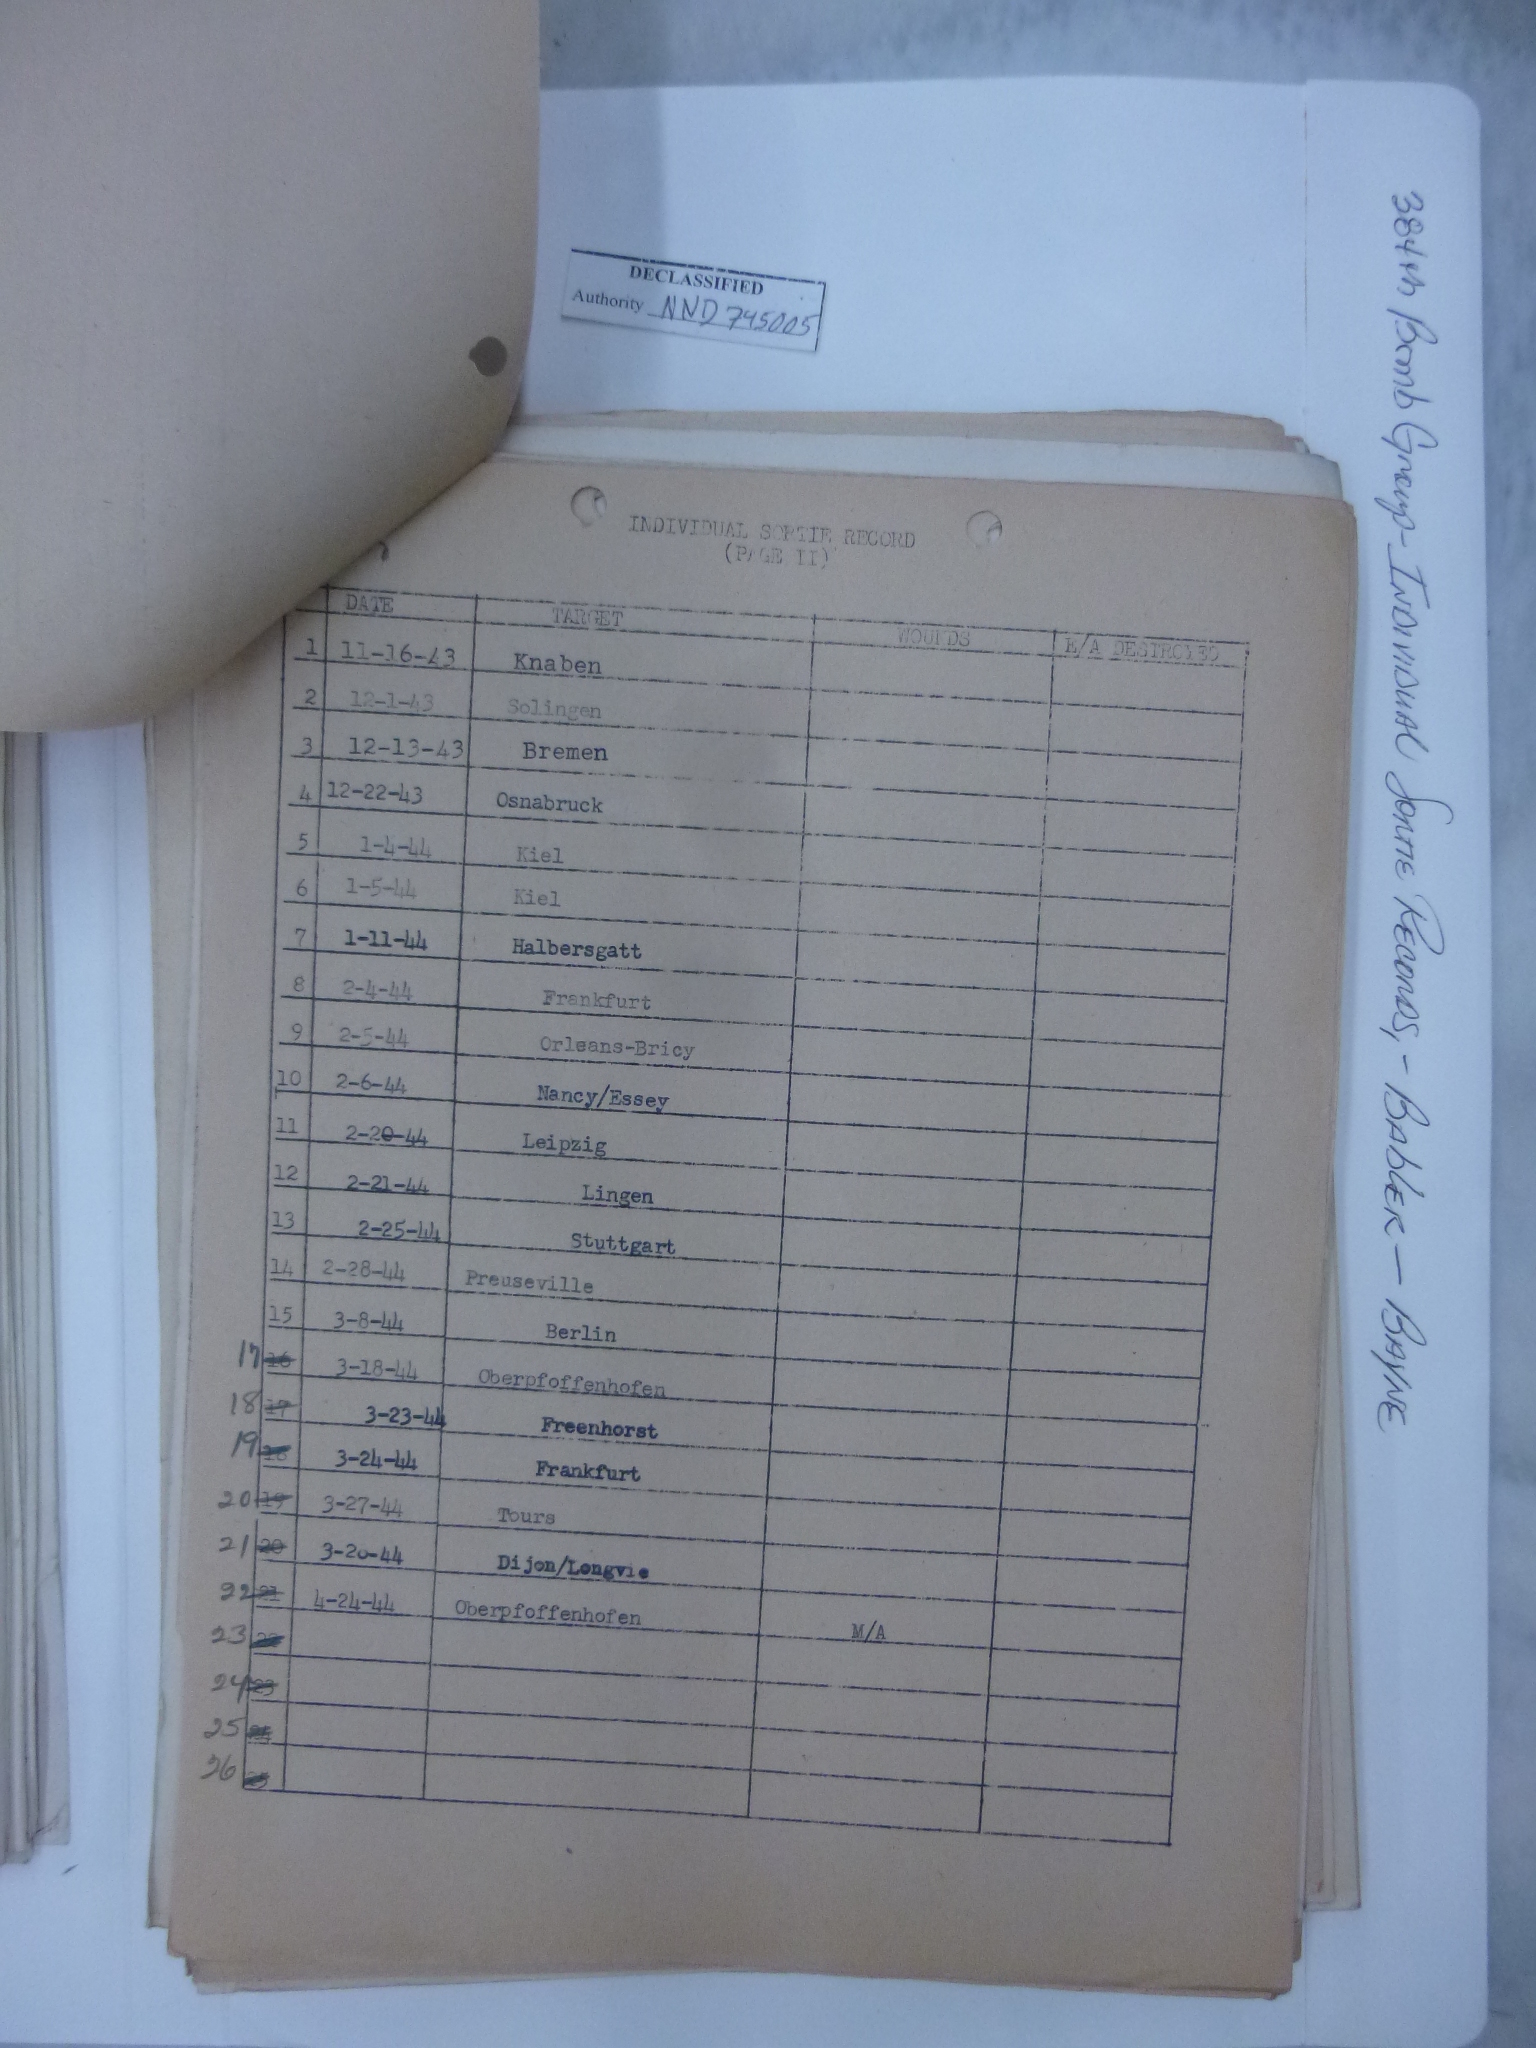 DECLASSIFIED
Authority NND 745005
384th Bomb Group - Individual Sortie Records, - Babler — Bayne
INDIVIDUAL SORTIE RECORD
(PAGE II)
DATE TARGET WOUNDS E/A DESTROYED
1 11-16-43 Knaben
2 12-1-43 Solingen
3 12-13-43 Bremen
4 12-22-43 Osnabruck
5 1-4-44 Kiel
6 1-5-44 Kiel
7 1-11-44 Halbersgatt
8 2-4-44 Frankfurt
9 2-5-44 Orleans-Bricy
10 2-6-44 Nancy/Essey
11 2-20-44 Leipzig
12 2-21-44 Lingen
13 2-25-44 Stuttgart
14 2-28-44 Preuseville
15 3-8-44 Berlin
17 16 3-18-44 Oberpfoffenhofen
18 17 3-23-44 Freenhorst
19 18 3-24-44 Frankfurt
20 19 3-27-44 Tours
21 20 3-20-44 Dijon/Longvie
22 21 4-24-44 Oberpfoffenhofen M/A
23
24 23
25
26 25